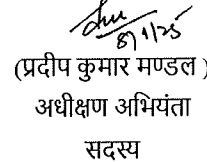 8/1/25
(प्रदीप कुमार मण्डल )
अधीक्षण अभियंता
सदस्य